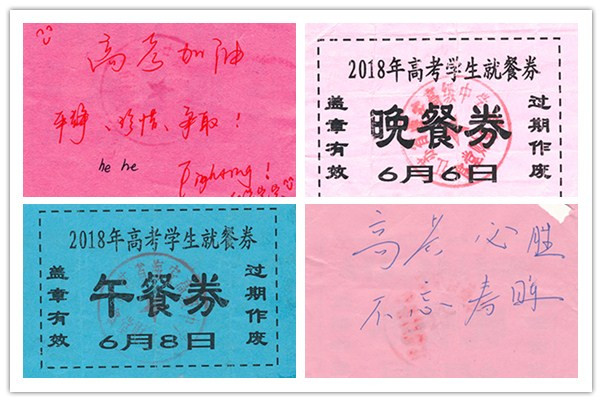 高考加油
平静、珍惜、争取！
he he
Fighting!
2018年高考学生就餐券
盖章有效
晚餐券
过期作废
6月6日
2018年高考学生就餐券
盖章有效
午餐券
过期作废
6月8日
高考必胜
不忘春晖